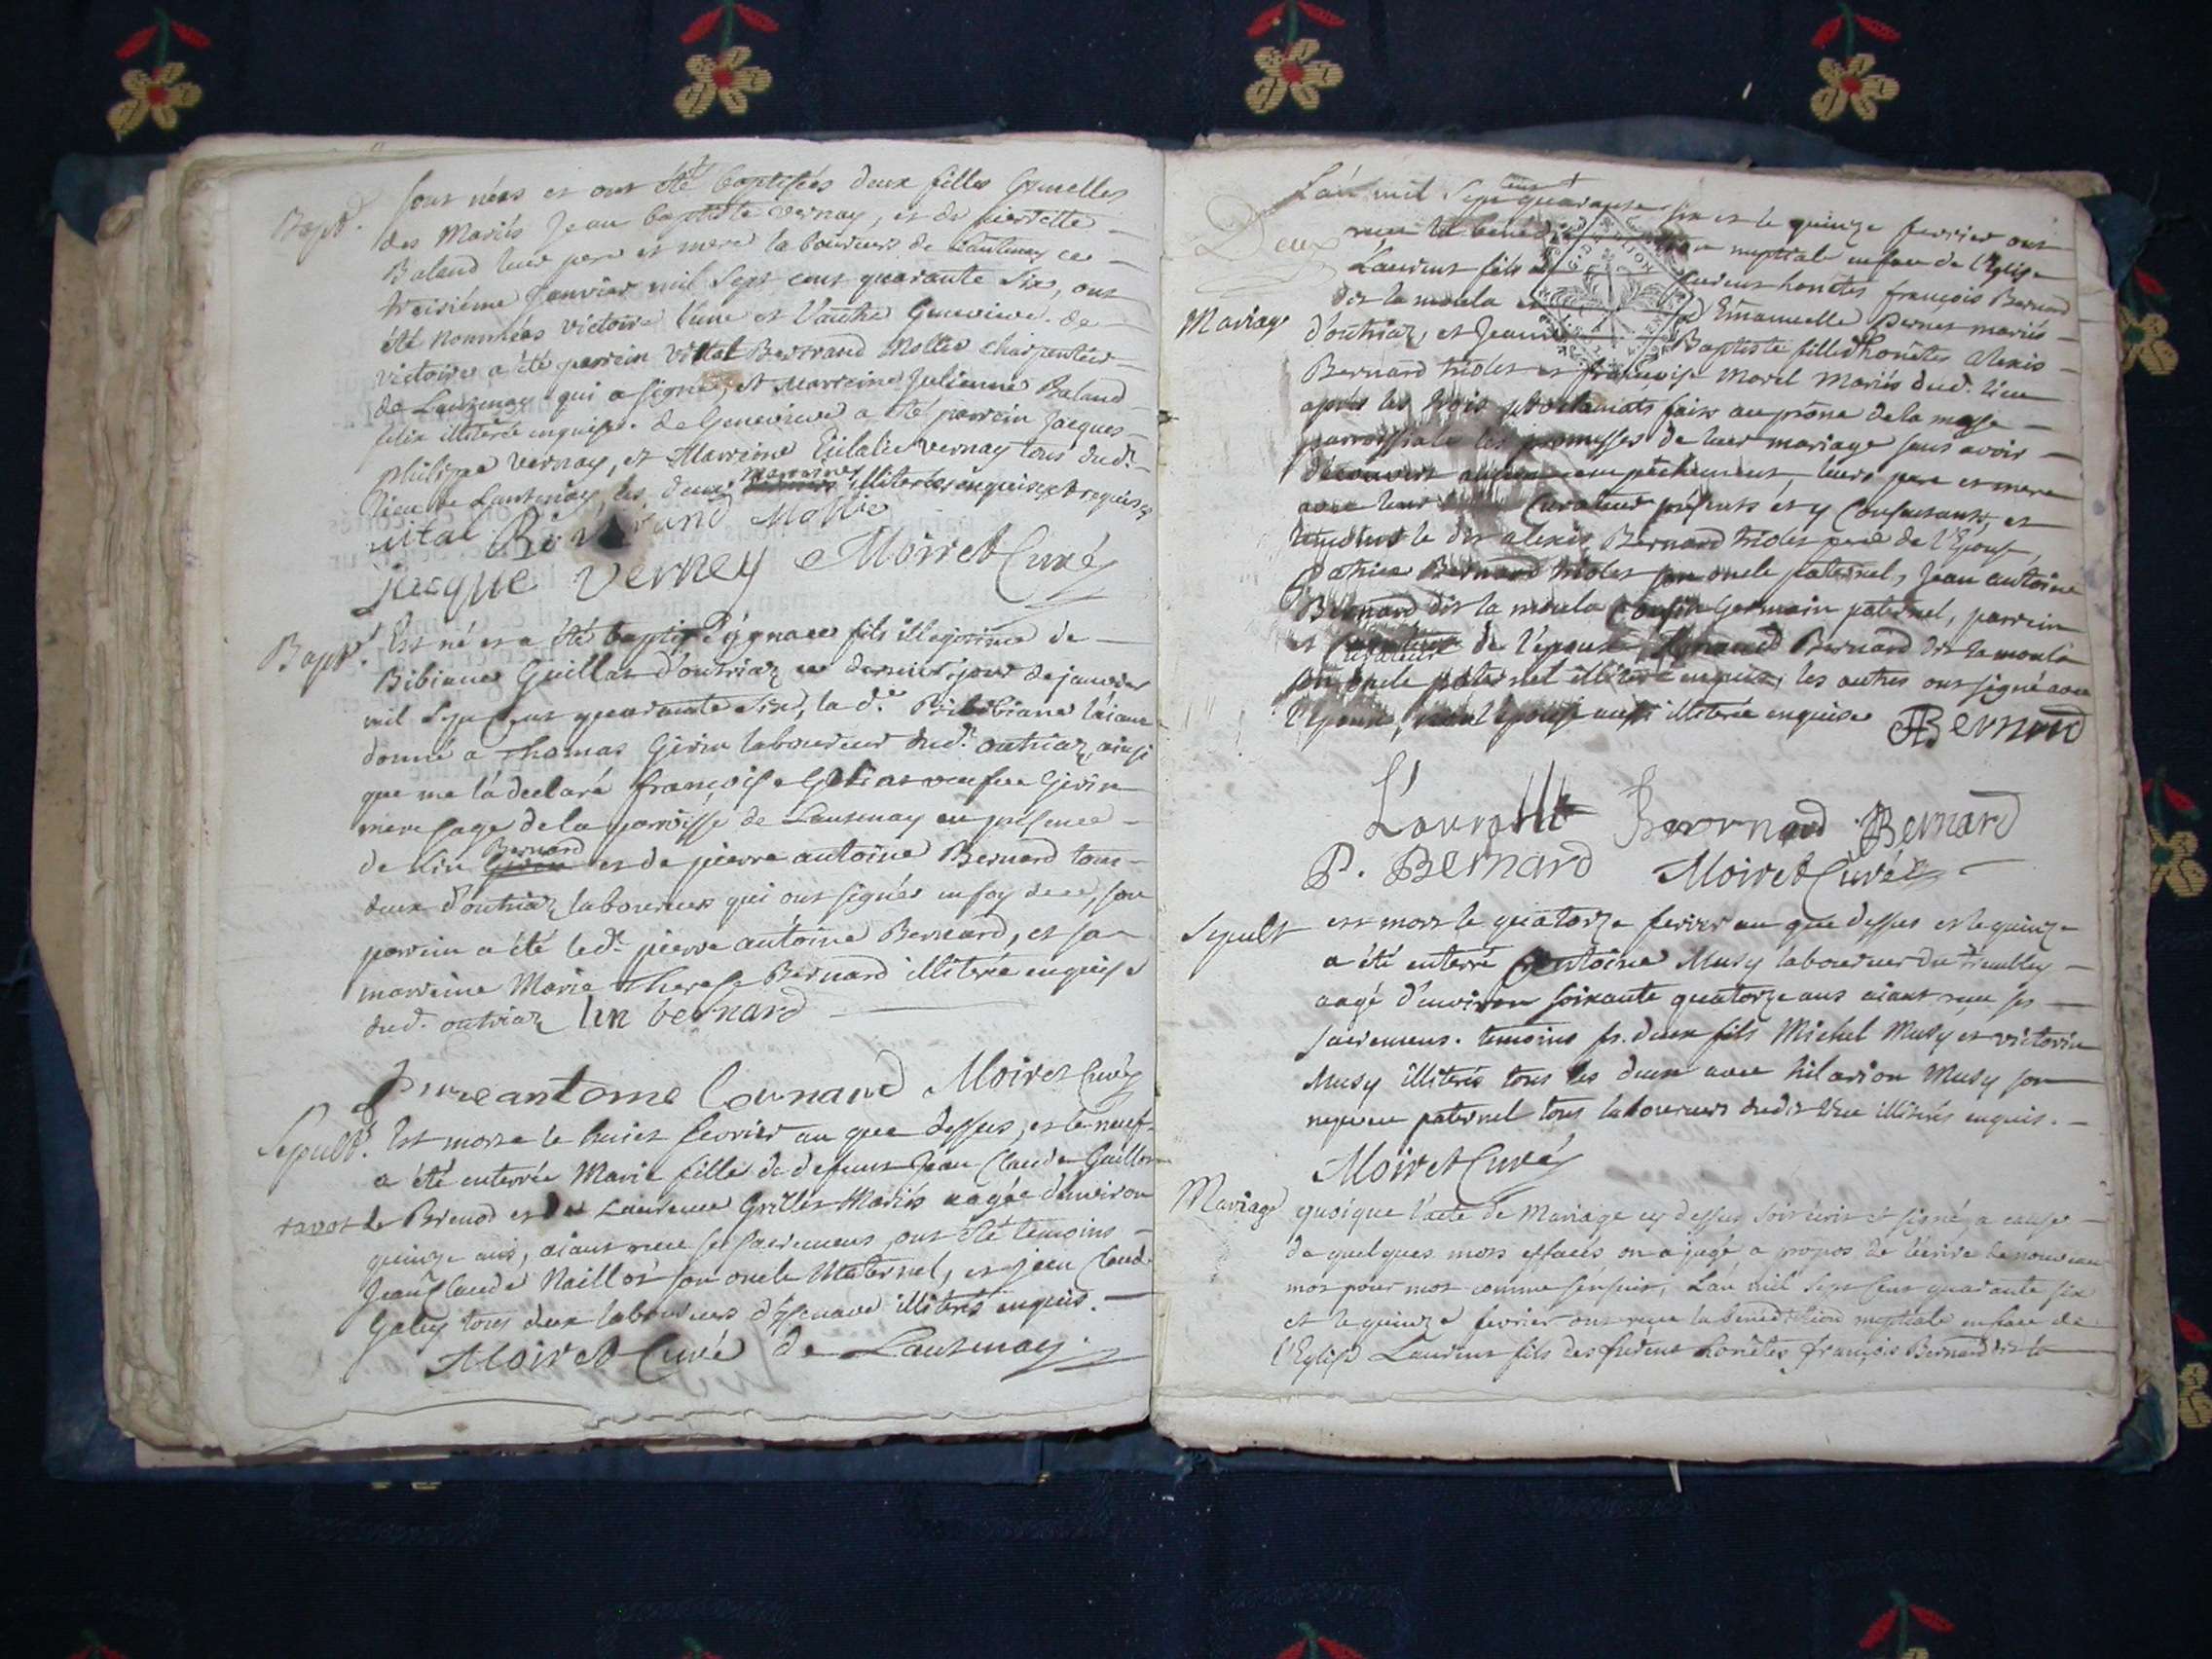 Bapt.
sont nées et ont été baptisées deux filles Gemelles
des Mariés Jean baptiste vernay, et de pierrette
Baland leur pere et mere laboureurs de Lantenay ce
treisiéme Janvier mil sept cent quarante six, ont
été nommées victoire l'une et l'autre Genevieve. de
victoire a été parrein vital Bertrand Mollie charpentier
de Lantenay qui a signé, et Marreine Julienne Baland
illiterée enquise. de Genevieve a été parrein Jacques
philippe vernay, et Marreine Eulalie vernay tous dud.
lieu de Lantenay, les deux marraines illiterées enquises et requises
vital Bertrand Mollie
jacque verney Moiret Curé
Bapt.
Est né et a été baptisé ygnace fils illegitime de
Bibiane Guillot d'outriaz ce dernier jour de janvier
mil sept cent quarante six, la d. Bibiane l'aiant
donné a Thomas Girin laboureur dud. outriaz, ainsi
que me l'a declaré françoise veufve Girin
mere sage de la parroisse de Lantenay en présence
de Lin Bernard et de pierre antoine Bernard tous
deux d'outriaz laboureurs qui ont signés en foy de ce, son
parrein a été led. pierre antoine Bernard, et sa
marreine Marie Therese Bernard illiterée enquise
dud. outriaz lin bernard
Pierre antoine bernand Moiret Curé
Sepult.
Est morte le huict fevrier an que dessus, et le neuf
a été enterrée Marie fille de defunt Jean Claude Guillot
de Brenod et de Laurence Grillet Mariés aagée d'environ
quinze ans, aiant receu ses sacremens, ont été temoins
Jean Claude Naillod son oncle Maternel, et jean Claude
Galey tous deux laboureurs d'Izenave illiterés enquis.
Moiret Curé de Lantenay
Deux
L'an mil sept cent quarante six et le quinze fevrier ont
receu la benediction nuptiale en face de l'Eglise
Laurent fils honetes françois Bernard
dit la moula et Emanuelle Pernet mariés
Mariage
d'outriaz, et Jeanne Baptiste fille d'honêtes alexis
Bernard triolet et françoise Morel Mariés dud. lieu
aprés les trois proclamats faits au prône de la messe
parroissiale les promesses de leur mariage sans avoir
découvert aucun empêchement, leurs pere et mere
avec leur Curateur présents et y Consentants, et
temoins le dit alexis Bernard triolet pere de l'Epouse,
patrice Bernard triolet son oncle paternel, Jean antoine
Bernard dit la moula Cousin Germain paternel, parrein
et Curateur de l'epoux Bernard dit la moula
son oncle paternel illiteré enquis, les autres ont signé avec
l'epoux, non l'épouse aussi illiterée enquise ABernard
Laurent Bernard Bernard
P. Bernard Moiret Curé
Sepult
est mort le quatorze fevrier an que dessus et le quinze
a été enterré Antoine Musy laboureur du Tremblay
aagé d'environ soixante quatorze ans aiant receu ses
sacremens. temoins ses deux fils Michel Musy et victorin
Musy illiterés tous les deux avec hilarion Musy son
nepveu paternel tous laboureurs dudit lieu illiterés enquis.
Moiret Curé
Mariage
quoique l'acte de Mariage cy dessus soit écrit et signé, a cause
de quelques mots effacés on a jugé a propos de l'écrire de nouveau
mot pour mot comme s'ensuit, L'an mil sept cent quarante six
et le quinze fevrier ont receu la benediction nuptiale en face de
l'Eglise Laurent fils des honêtes françois Bernard dit la